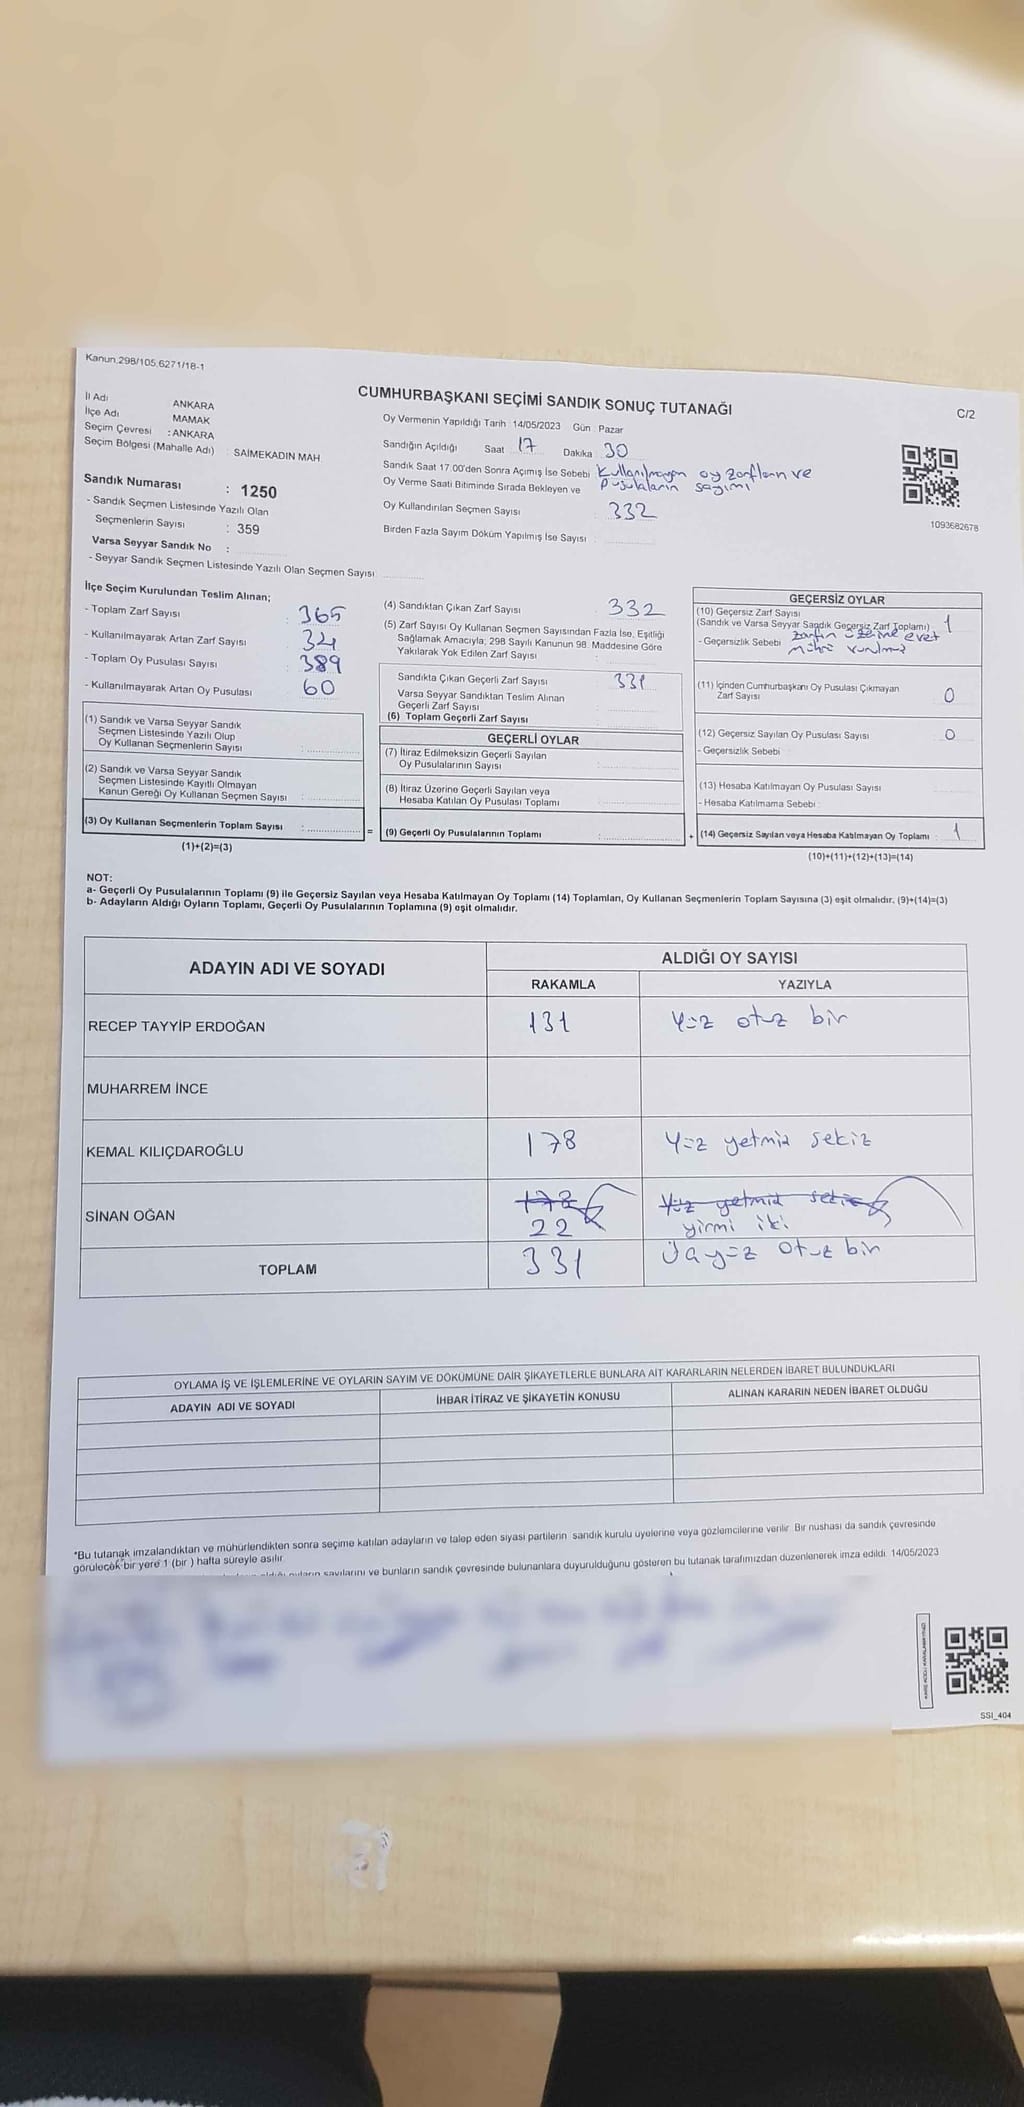 Kanun.298/105.6271/18-1
CUMHURBAŞKANI SEÇİMİ SANDIK SONUÇ TUTANAĞI
C/2
İl Adı ANKARA
İlçe Adı MAMAK
Seçim Çevresi : ANKARA
Seçim Bölgesi (Mahalle Adı) : SAİMEKADIN MAH
Sandık Numarası : 1250
- Sandık Seçmen Listesinde Yazılı Olan
Seçmenlerin Sayısı : 359
Varsa Seyyar Sandık No :
- Seyyar Sandık Seçmen Listesinde Yazılı Olan Seçmen Sayısı
Oy Vermenin Yapıldığı Tarih 14/05/2023 Gün : Pazar
Sandığın Açıldığı Saat 17 Dakika 30
Sandık Saat 17:00'den Sonra Açımış İse Sebebi Kullanılmayan oy zarfların ve
Oy Verme Saati Bitiminde Sırada Bekleyen ve pusulaların sayımı
Oy Kullandırılan Seçmen Sayısı 332
Birden Fazla Sayım Döküm Yapılmış İse Sayısı :
1093682678
İlçe Seçim Kurulundan Teslim Alınan;
- Toplam Zarf Sayısı : 365
- Kullanılmayarak Artan Zarf Sayısı : 34
- Toplam Oy Pusulası Sayısı : 389
- Kullanılmayarak Artan Oy Pusulası : 60
(1) Sandık ve Varsa Seyyar Sandık
Seçmen Listesinde Yazılı Olup
Oy Kullanan Seçmenlerin Sayısı :
(2) Sandık ve Varsa Seyyar Sandık
Seçmen Listesinde Kayıtlı Olmayan
Kanun Gereği Oy Kullanan Seçmen Sayısı :
(3) Oy Kullanan Seçmenlerin Toplam Sayısı :
(1)+(2)=(3)
(4) Sandıktan Çıkan Zarf Sayısı : 332
(5) Zarf Sayısı Oy Kullanan Seçmen Sayısından Fazla İse, Eşitliği
Sağlamak Amacıyla; 298 Sayılı Kanunun 98. Maddesine Göre
Yakılarak Yok Edilen Zarf Sayısı :
Sandıkta Çıkan Geçerli Zarf Sayısı : 331
Varsa Seyyar Sandıktan Teslim Alınan
Geçerli Zarf Sayısı :
(6) Toplam Geçerli Zarf Sayısı
GEÇERLİ OYLAR
(7) İtiraz Edilmeksizin Geçerli Sayılan
Oy Pusulalarının Sayısı :
(8) İtiraz Üzerine Geçerli Sayılan veya
Hesaba Katılan Oy Pusulası Toplamı :
= (9) Geçerli Oy Pusulalarının Toplamı :
GEÇERSİZ OYLAR
(10) Geçersiz Zarf Sayısı
(Sandık ve Varsa Seyyar Sandık Geçersiz Zarf Toplamı) : 1
- Geçersizlik Sebebi zarfın üzerine evet
mührü vurulmuş
(11) İçinden Cumhurbaşkanı Oy Pusulası Çıkmayan
Zarf Sayısı 0
(12) Geçersiz Sayılan Oy Pusulası Sayısı : 0
- Geçersizlik Sebebi
(13) Hesaba Katılmayan Oy Pusulası Sayısı
- Hesaba Katılmama Sebebi :
+ (14) Geçersiz Sayılan veya Hesaba Katılmayan Oy Toplamı : 1
(10)+(11)+(12)+(13)=(14)
NOT:
a- Geçerli Oy Pusulalarının Toplamı (9) ile Geçersiz Sayılan veya Hesaba Katılmayan Oy Toplamı (14) Toplamları, Oy Kullanan Seçmenlerin Toplam Sayısına (3) eşit olmalıdır. (9)+(14)=(3)
b- Adayların Aldığı Oyların Toplamı, Geçerli Oy Pusulalarının Toplamına (9) eşit olmalıdır.
ADAYIN ADI VE SOYADI ALDIĞI OY SAYISI
RAKAMLA YAZIYLA
RECEP TAYYİP ERDOĞAN 131 Yüz otuz bir
MUHARREM İNCE
KEMAL KILIÇDAROĞLU 178 Yüz yetmiş sekiz
178 Yüz yetmiş sekiz
SİNAN OĞAN 22 yirmi iki
TOPLAM 331 Üçyüz otuz bir
OYLAMA İŞ VE İŞLEMLERİNE VE OYLARIN SAYIM VE DÖKÜMÜNE DAİR ŞİKAYETLERLE BUNLARA AİT KARARLARIN NELERDEN İBARET BULUNDUKLARI
ADAYIN ADI VE SOYADI İHBAR İTİRAZ VE ŞİKAYETİN KONUSU ALINAN KARARIN NEDEN İBARET OLDUĞU
*Bu tutanak imzalandıktan ve mühürlendikten sonra seçime katılan adayların ve talep eden siyasi partilerin sandık kurulu üyelerine veya gözlemcilerine verilir. Bir nushası da sandık çevresinde
görülecek bir yere 1 (bir ) hafta süreyle asılır.
sayılarını ve bunların sandık çevresinde bulunanlara duyurulduğunu gösteren bu tutanak tarafımızdan düzenlenerek imza edildi. 14/05/2023
SSI_404